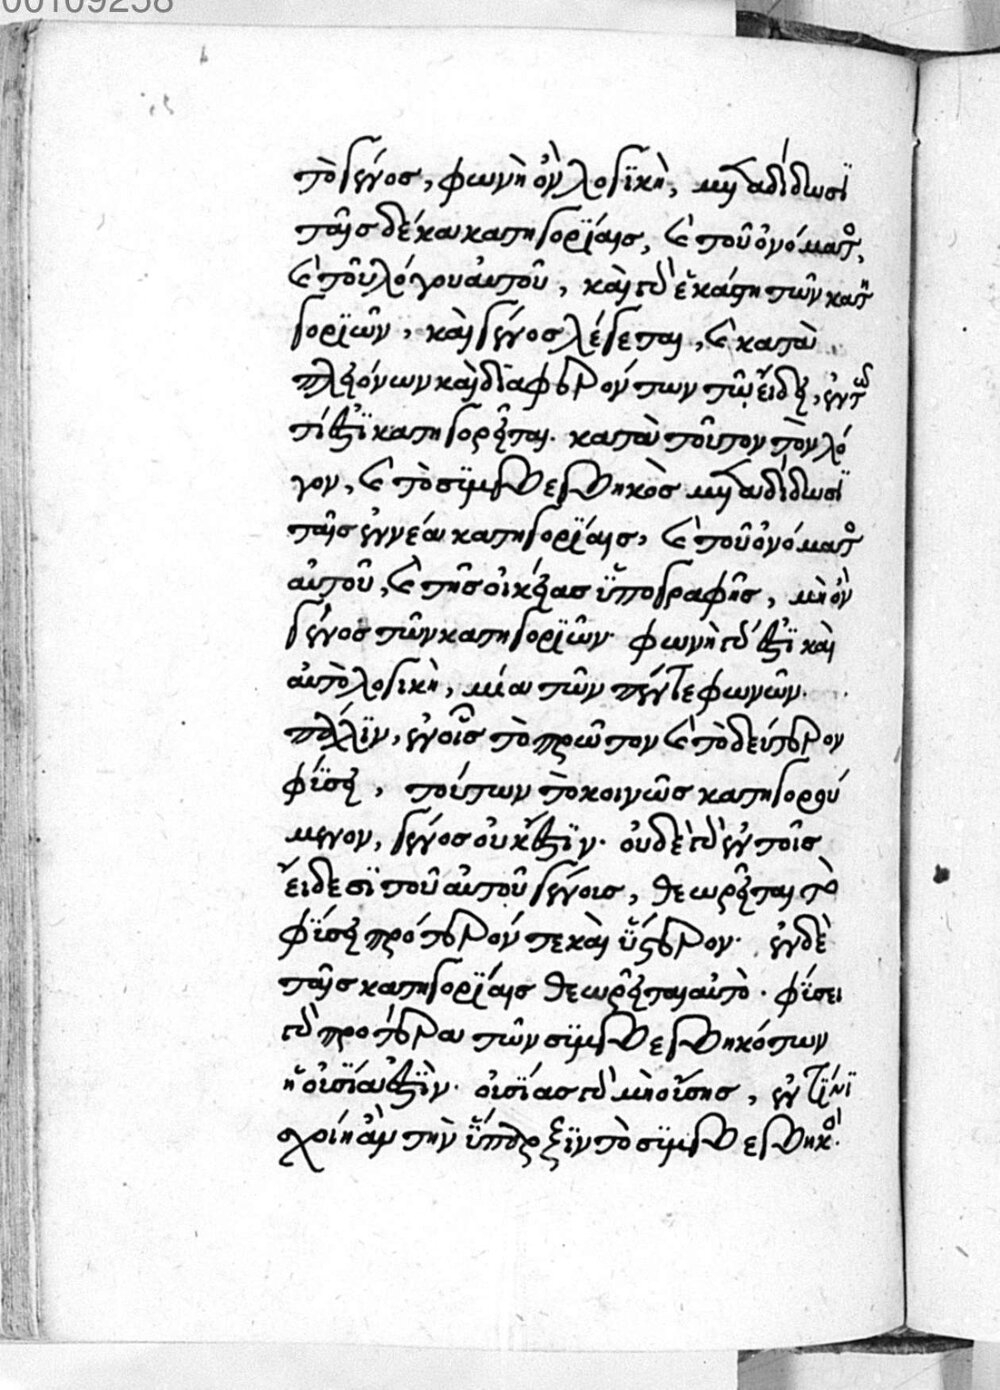 00109258
τὸ γένος, φωνὴ ὂν λογϊκὴ, μεταδίδωσϊ
ταῖς δέκα κατηγορΐαις, καὶ τοῦ ὀνόματος,
καὶ τοῦ λόγου αὐτοῦ, καὶ γὰρ ἑκάστη τῶν κατη
γορϊῶν, καὶ γένος λέγεται, καὶ κατὰ
πλειόνων καὶ διαφερόντων τῷ εἴδει, ἐν τῷ
τί ἐστϊ κατηγορεῖται. κατὰ τοῦτον τὸν λό
γον, καὶ τὸ συμβεβηκὸς μεταδίδωσϊ
ταῖς ἐννέα κατηγορΐαις, καὶ τοῦ ὀνόματος
αὐτοῦ, καὶ τῆς οἰκείας ὑπογραφῆς, μὴ ὂν
γένος τῶν κατηγορϊῶν. φωνὴ γάρ ἐστϊ καὶ
αὐτὸ λογικὴ, μία τῶν πέντε φωνῶν.
πάλϊν, ἐν οἷς τὸ πρῶτον καὶ τὸ δεύτερον
φύσει, τούτων τὸ κοινῶς κατηγορού
μενον, γένος οὐκ ἔστϊν. οὐδὲ γὰρ ἐν τοῖς
εἴδεσϊ τοῦ αὐτοῦ γένοις, θεωρεῖται τὸ
φύσει πρότερόν τε καὶ ὕστερον. ἐν δὲ
ταῖς κατηγορΐαις θεωρεῖται αὐτὸ. φύσει
γὰρ προτέρα τῶν συμβεβηκότων
ἡ οὐσία ἐστϊν. οὐσίας γὰρ μὴ οὔσης, ἐν τίνϊ
σχοίη ἂν τὴν ὕπαρξϊν τὸ συμβεβηκός.